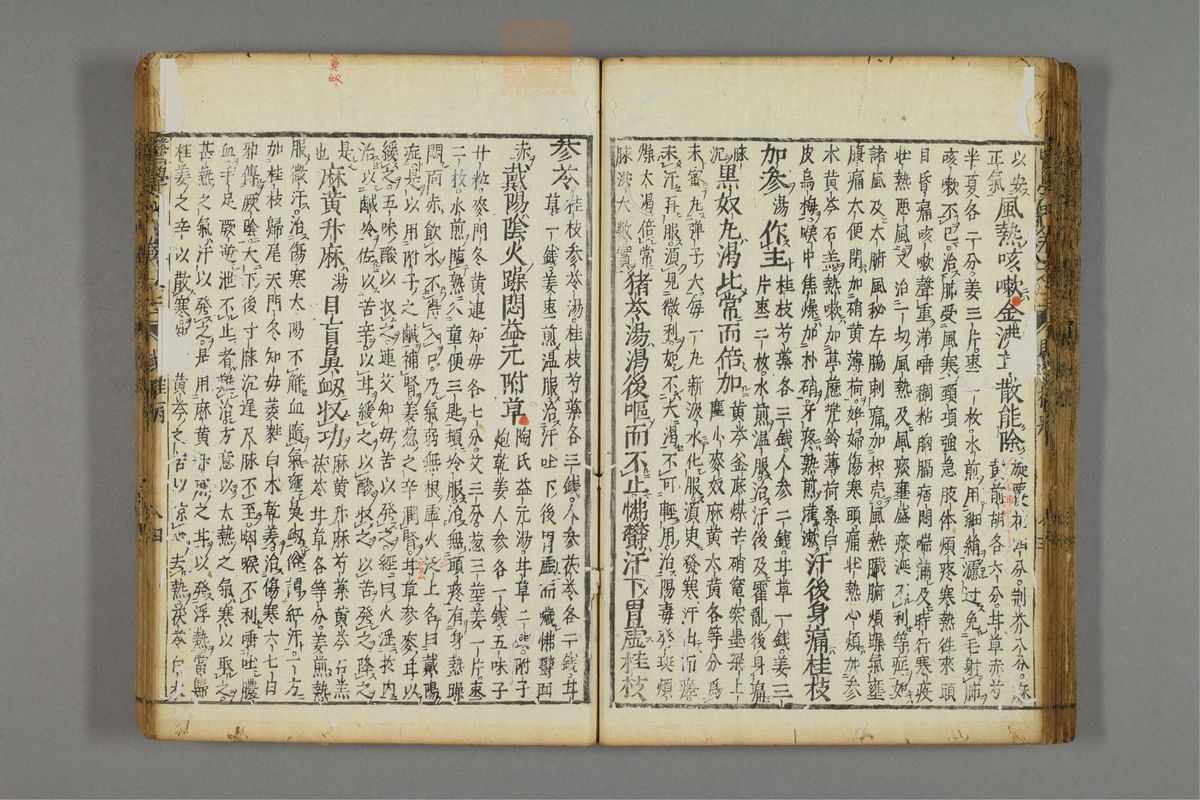 以安
正氣風熱咳嗽金沸草散能除旋覆 荊芥八分麻
黃前胡各六分甘草赤芍
半夏各二分姜三片棗一枚水煎用細絹濾過免毛射肺
咳嗽不已治肺受風寒頭項強急肢体煩疼寒熱徃來頭
目昏痛咳嗽聲重涕唾稠粘胸膈痞悶喘滿及時行寒疫
壮熱悪風又治一切風熱及風痰壅盛痰涎不利等症如
諸風及大腑風秘左脇刺痛加枳壳風熱臟腑煩躁氣壅
膚痛大便閉加硝黄薄荷姙婦傷寒頭痛壮熱心煩加參
术黄芩石羔熱嗽加葶藶兠鈴薄荷桑白
皮烏梅喉中焦燥加朴硝牙疼熱煎灌漱汗後身痛桂枝
加參湯作主桂枝芍藥各三錢人参二錢甘草一錢姜三
片棗二枚水煎温服治汗後及霍亂後身痛
脉
沉黒奴丸渴比常而倍加黄芩釜底煤芒硝竈突墨梁上
塵小麥奴麻黄大黄各等分為
末蜜丸弹子大每一丸新汲水化服須更發寒汗出而瘥
未汗再服須見微利如不大渴不可輕用治陽毒發斑煩
燥大渴倍常
脉洪大數實猪苓湯渴後嘔而不止怫鬱汗下胃虚桂枝
參苓桂枝参苓湯桂枝芍藥各三錢人参茯苓各二錢甘
草一錢姜棗煎温服治汗吐下後胃虚而噦怫鬱面
赤戴陽陰火躁悶益元附草陶氏益元湯甘草二錢附子
炮乾姜人參各一錢五味子
廿粒麥門冬黄連知毋各七分艾三分葱三莖姜一片棗
二枚水煎臨熟入童便三匙頓冷服治無頭疼有身熱躁
悶面赤飲水不得入口乃氣弱無根虚火泛上名曰戴陽
症是以用附子之鹹補腎姜葱之辛潤腎甘草參麥甘以
緩之五味酸以收之連艾知毋苦以發之經曰火滛於内
治以鹹冷佐以苦辛以甘緩之以酸收之以苦發之降之
是
也麻黄升麻湯目盲鼻衄收功麻黄升麻芍藥黄芩石羔
茯苓甘草各等分姜煎熱
服微汗治傷寒太陽不解血隨氣壅鼻衄俗謂紅汗一方
加桂枝歸尾天門冬知毋萎蕤白术乾姜治傷寒六七日
邪傳厥陰大下後寸脉沉遲尺脉不至咽喉不利唾吐膿
血手足厥逆泄不止者難治方意以太熱之氣寒以取之
甚熱之氣汗以發之是用麻黄升麻之甘以發浮熱當歸
桂姜之辛以散寒
黄芩之苦以凉心去熱茯苓白术